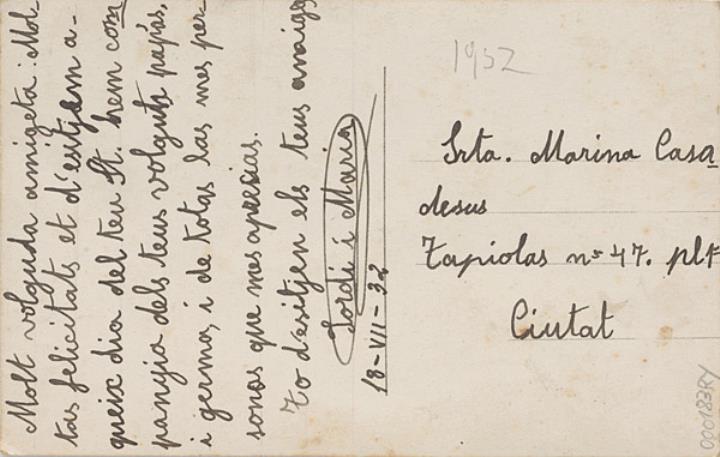 Molt volguda amigeta: Mol-
tas felicitats et d'esitjem a-
queix dia del teu St. hem com
panyia dels teus volguts papás,
i germa, i de totas las mes per-
sonas que mes apresias.
To d'esitjen els teus amigs
Jordi i Maria
18-VII-32
1932
Srta. Marina Casa
desus
Tapiolas nº 47. pl
Ciutat
000183RY